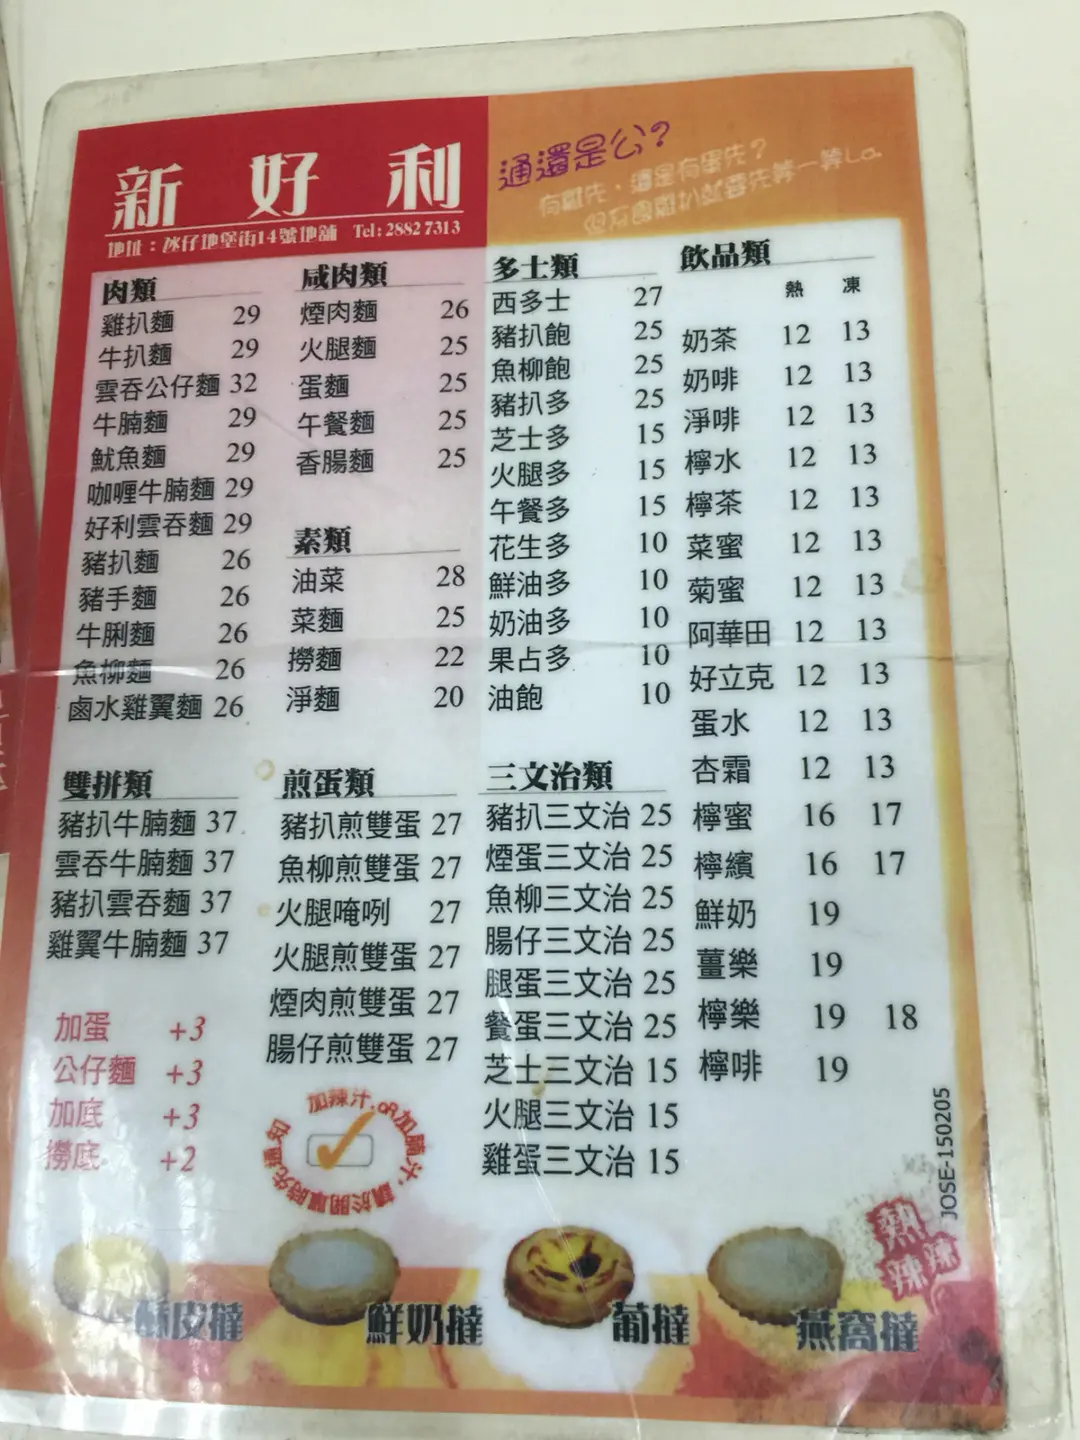 新好利
地址：氹仔地堡街14號地舖 Tel: 2882 7313
通還是公?
有雞先，還是有蛋先？
肉類
雞扒麵 29
牛扒麵 29
雲吞公仔麵 32
牛腩麵 29
魷魚麵 29
咖喱牛腩麵 29
好利雲吞麵 29
豬扒麵 26
豬手麵 26
牛脷麵 26
魚柳麵 26
鹵水雞翼麵 26
咸肉類
煙肉麵 26
火腿麵 25
蛋麵 25
午餐麵 25
香腸麵 25
素類
油菜 28
菜麵 25
撈麵 22
淨麵 20
多士類
西多士 27
豬扒飽 25
魚柳飽 25
豬扒多 25
芝士多 15
火腿多 15
午餐多 15
花生多 10
鮮油多 10
奶油多 10
果占多 10
油飽 10
飲品類
熱 凍
奶茶 12 13
奶啡 12 13
淨啡 12 13
檸水 12 13
檸茶 12 13
菜蜜 12 13
菊蜜 12 13
阿華田 12 13
好立克 12 13
蛋水 12 13
杏霜 12 13
檸蜜 16 17
檸繽 16 17
鮮奶 19
薑樂 19
檸樂 19 18
檸啡 19
雙拼類
豬扒牛腩麵 37
雲吞牛腩麵 37
豬扒雲吞麵 37
雞翼牛腩麵 37
加蛋 +3
公仔麵 +3
加底 +3
撈底 +2
煎蛋類
豬扒煎雙蛋 27
魚柳煎雙蛋 27
火腿唵咧 27
火腿煎雙蛋 27
煙肉煎雙蛋 27
腸仔煎雙蛋 27
加辣汁, OR加腩汁, 請於開單時先通知
三文治類
豬扒三文治 25
煙蛋三文治 25
魚柳三文治 25
腸仔三文治 25
腿蛋三文治 25
餐蛋三文治 25
芝士三文治 15
火腿三文治 15
雞蛋三文治 15
JOSE-150205
熱辣辣
酥皮撻
鮮奶撻
葡撻
燕窩撻